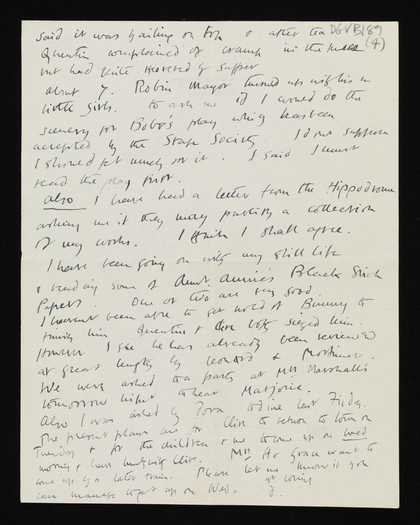 said it was hailing on top & after tea DGVB189
Quentin complained of cramp in the knees (4)
but had quite recovered by supper
about 7. Robin Mayor turned up with his
little girls. to ask me if I would do the
scenery for Bobo's play which has been
accepted by the Stage Society I dont suppose
I should get much for it. I said I must
read the play first.
also I have had a letter from the Hippodrome
asking me if they may publish a collection
of my works. I think I shall agree.
I have been going on with my still life
& reading some of Aunt Annie's Black Stick
Papers. One or two are very good.
I havent been able to get hold of Bunny to
him Quentin & Clive both him.
However I see he has already been reviewed
at great length by Leonard & Mortimer.
We were asked to a party at Mrs Marshall's
tomorrow night to hear Marjorie.
Also I was asked by Dora to dine last Friday.
The present plans are for Clive to return to town on
Tuesday & for the children & me to come up on Wed
morning & have lunch with Clive. Mrs H. & Grace want to
come up by a later train. Please let me know if you
can manage to get up on Wed.